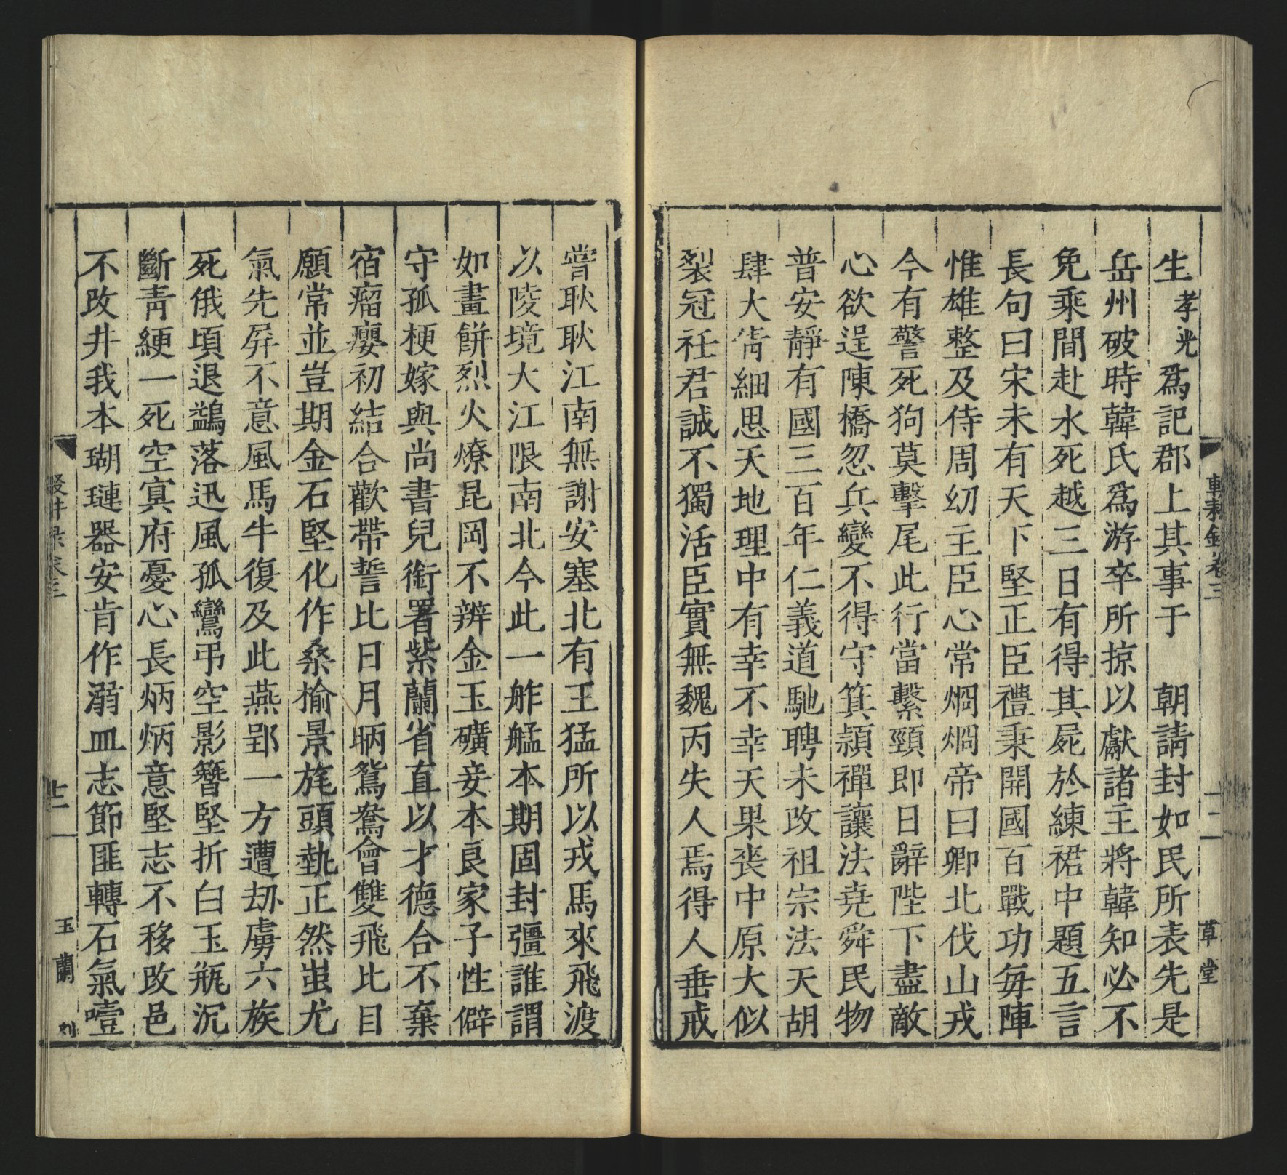 生孝光爲記郡上其事于　朝請封如民所表先是
岳州破時韓氏爲游卒所掠以獻諸主將韓知必不
免乘間赴水死越三日有得其屍於練裙中題五言
長句曰宋未有天下堅正臣禮秉開國百戰功每陣
惟雄整及侍周幼主臣心常烱烱帝曰卿北伐山戎
今有警死狗莫擊尾此行當繫頸即日辭陛下盡敵
心欲逞陳橋忽兵變不得守箕潁禪讓法堯舜民物
普安靜有國三百年仁義道馳聘未改祖宗法天胡
肆大眚細思天地理中有幸不幸天果喪中原大似
裂冠衽君誠不獨活臣實無魏丙失人焉得人垂戒
嘗耿耿江南無謝安塞北有王猛所以戎馬來飛渡
以陵境大江限南北今此一舴艋本期固封彊誰謂
如畫餅烈火燎昆岡不辨金玉礦妾本良家子性僻
守孤梗嫁與尚書兒銜署紫蘭省直以才德合不棄
宿瘤癭初結合歡帶誓比日月昞鴛鴦會雙飛比目
願常並豈期金石堅化作桑榆景旄頭執正然蚩尤
氣先屏不意風馬牛復及此燕郢一方遭刼虜六族
死俄頃退鷁落迅風孤鸞弔空影簪堅折白玉瓶沉
斷靑綆一死空冥府憂心長炳炳意堅志不移改邑
不改井我本瑚璉器安肯作溺皿志節匪轉石氣噎
輟耕錄卷三
十二
草堂
玉蘭